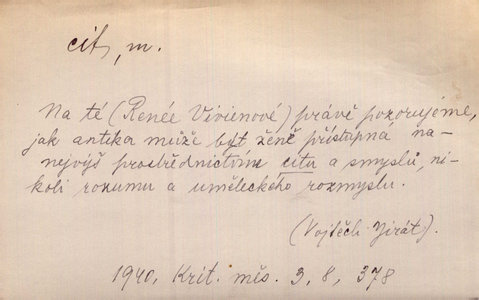 cit, m.
Na té (Renée Vivienové) právě pozorujeme,
jak antika může být ženě přístupná na-
nejvýš prostřednictvím citu a smyslů, ni-
koli rozumu a uměleckého rozmyslu.
(Vojtěch Jirát).
1940, Krit. měs. 3, 8, 378